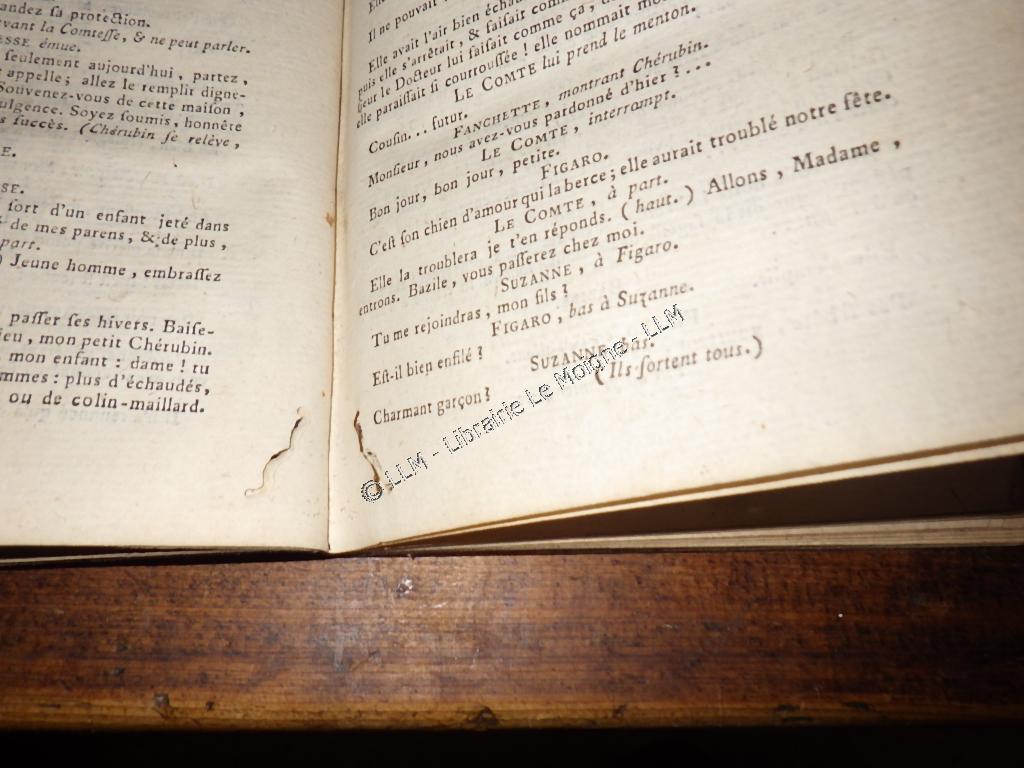 andez sa protection.
vant la Comtesse, & ne peut parler.
ESSE émue.
seulement aujourd'hui, partez,
appelle; allez le remplir digne-
Souvenez-vous de cette maison,
ulgence. Soyez soumis, honnête
s succès. (Chérubin se relève,
E.
SSE.
sort d'un enfant jeté dans
de mes parens, & de plus,
part.
) Jeune homme, embrassez
passer ses hivers. Baise-
ieu, mon petit Chérubin.
mon enfant : dame ! tu
mmes : plus d'échaudés,
ou de colin-maillard.
Il ne pouvait
Elle avait l'air bien échau
puis elle s'arrêtait, & faisait com
sieur le Docteur lui faisait comme ça, de
elle paraissait si courroussée ! elle nommait mo
LE COMTE lui prend le menton.
Cousin... futur.
FANCHETTE, montrant Chérubin.
Monsieur, nous avez-vous pardonné d'hier ?...
LE COMTE, interrompt.
Bon jour, bon jour, petite.
FIGARO.
C'est son chien d'amour qui la berce; elle aurait troublé notre fête.
LE COMTE, à part.
Elle la troublera je t'en réponds. (haut.) Allons, Madame,
entrons. Bazile, vous passerez chez moi.
SUZANNE, à Figaro.
Tu me rejoindras, mon fils ?
FIGARO, bas à Suzanne.
Est-il bien enfilé ?
SUZANNE bas.
Charmant garçon ?
(Ils sortent tous.)
© LLM - Librairie Le Moigne - LLM